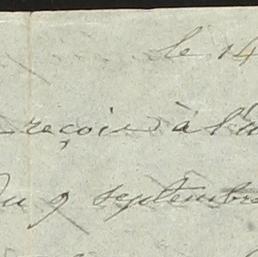 le 14
reçois à l'
du 9 septembre